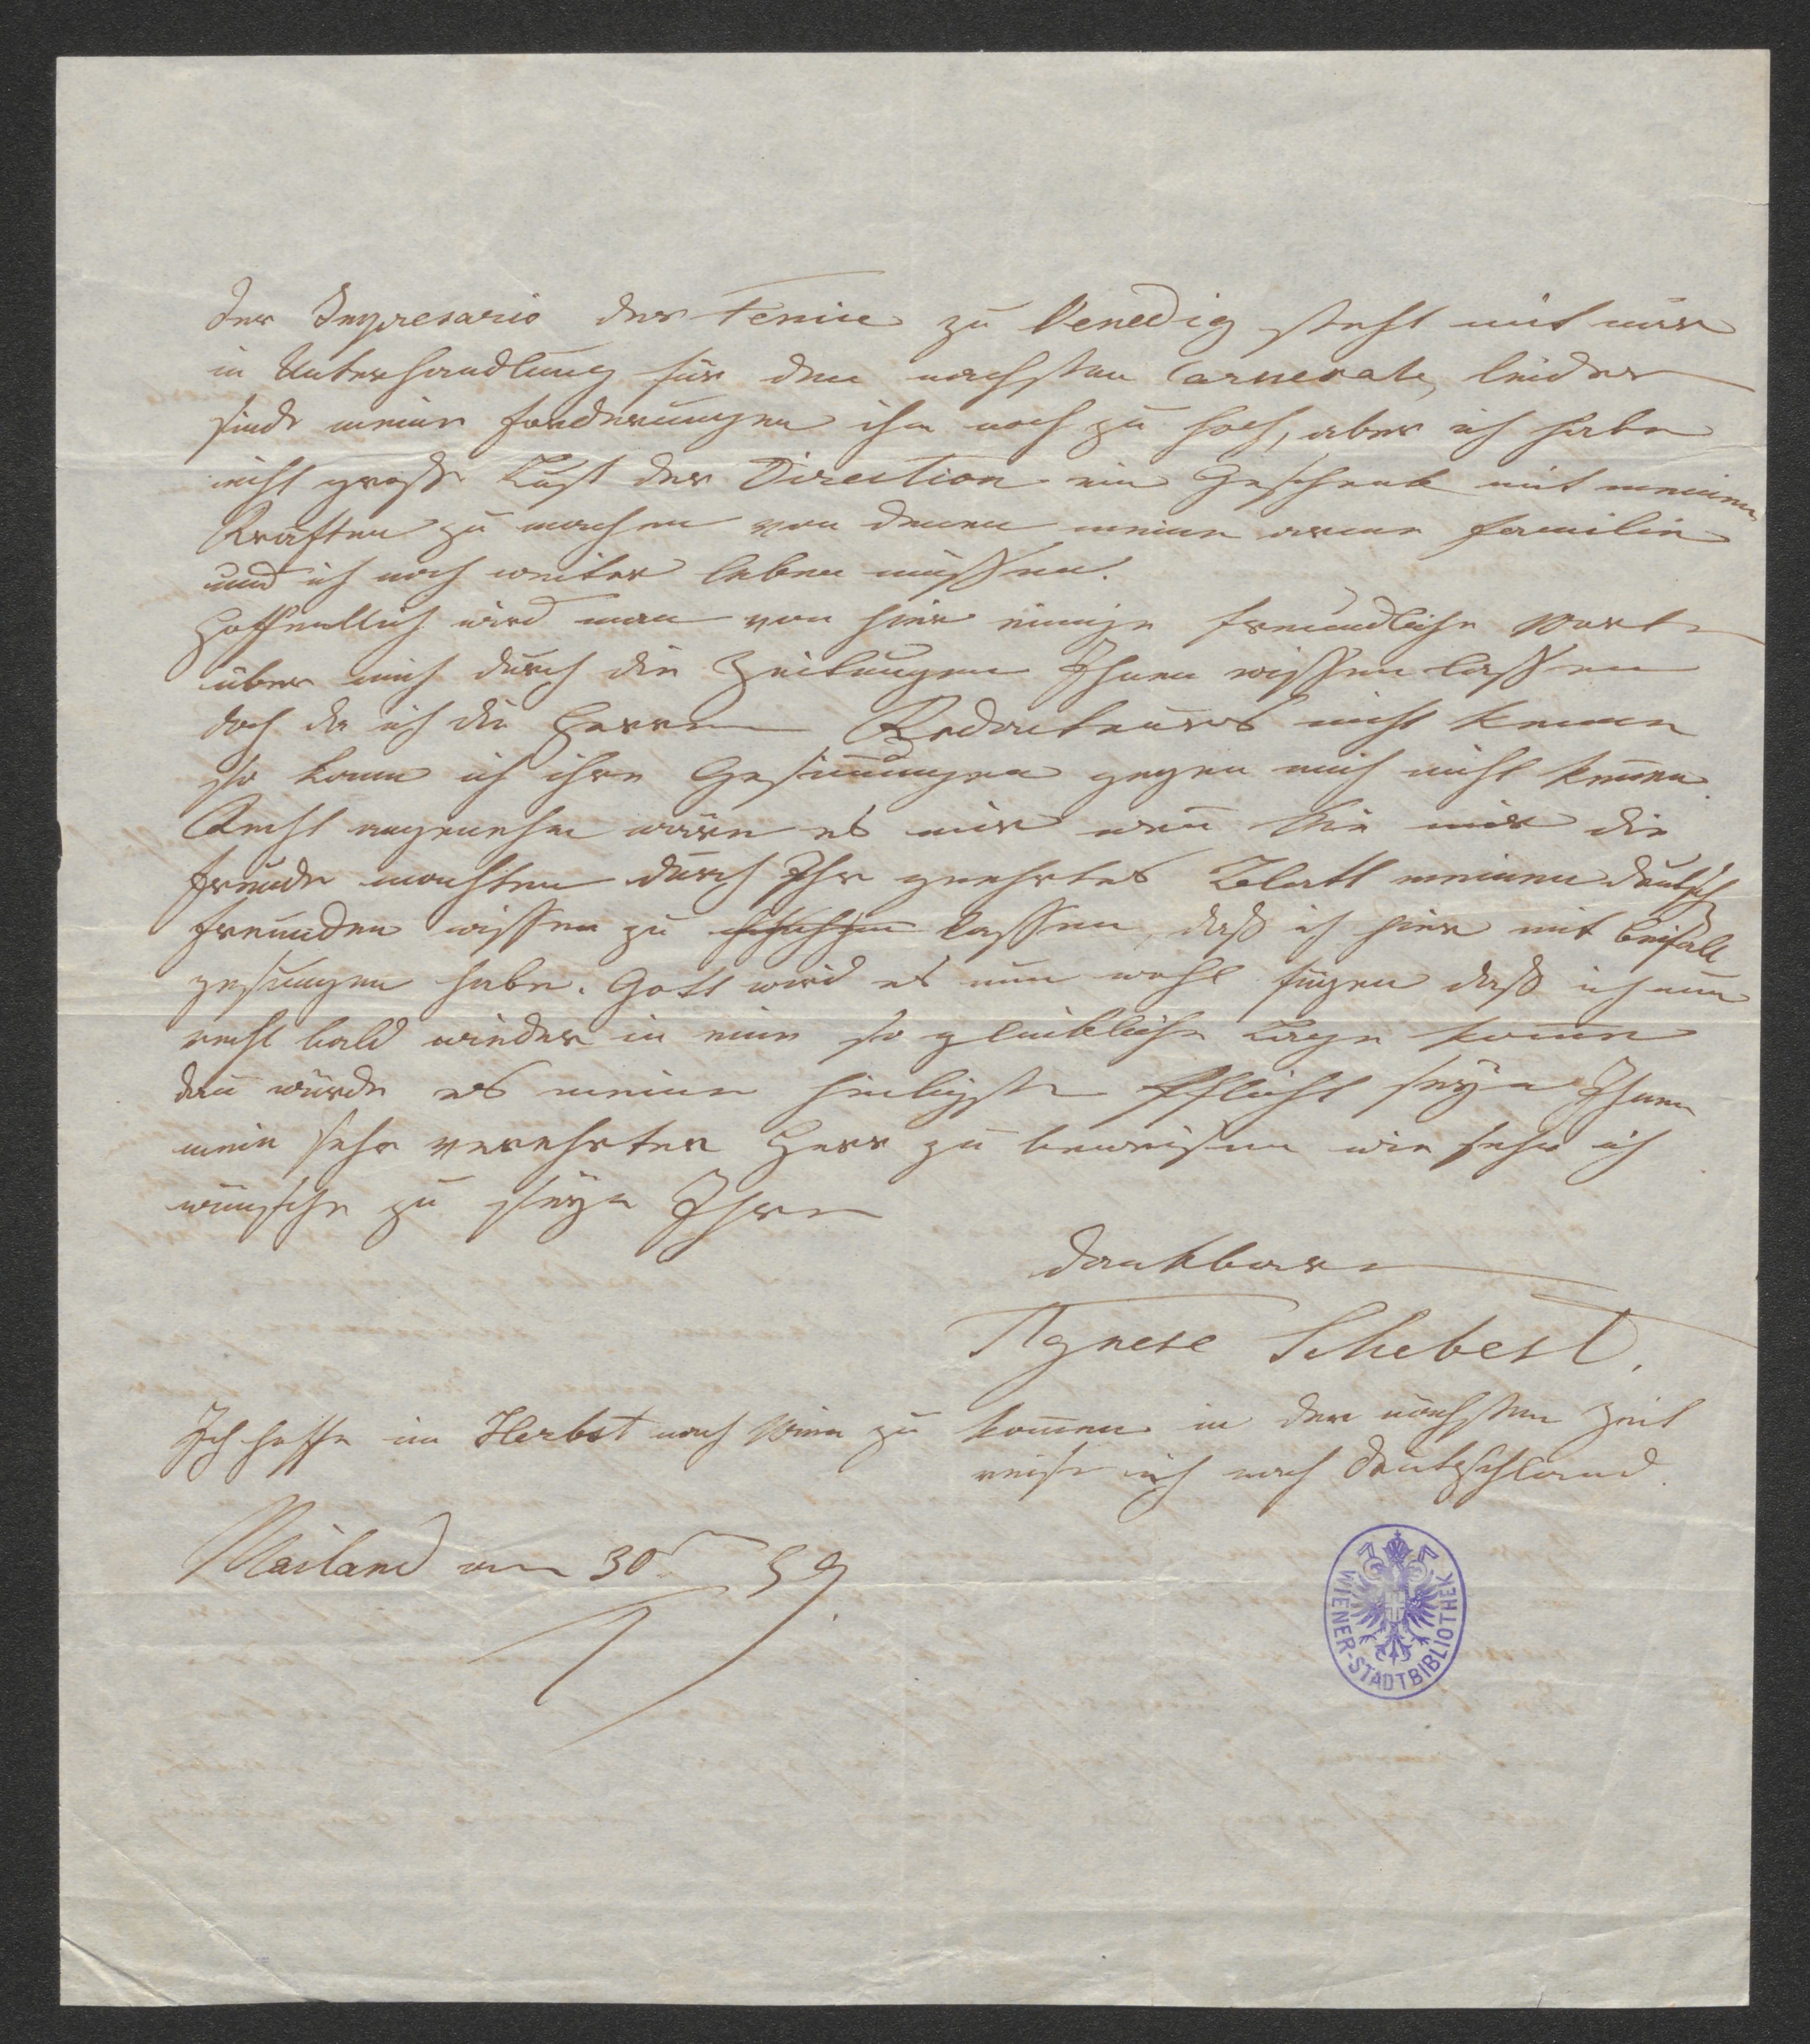 Der Impresario der Fenice zu Venedig steht mit mir
in Unterhandlung für den nachsten Carnevale, leider
sind meine Forderungen ihm noch zu hoch, aber ich habe
nicht große Lust der Direction ein Geschenk mit meinen
Kräften zu machen von denen meine arme Familie
und ich noch weiter leben müssen.
Hoffentlich wird man von hier einige freundliche Worte
über mich durch die Zeitungen Ihnen wissen lassen
doch da ich die Herren Redacteurs nicht kenne
so kann ich ihre Gesinnungen gegen mich nicht kennen.
Recht angenehm wäre es mir wen̄ Sie mir die
Freude machten durch Ihr geehrtes Blatt meinen deutsch
Freunden wissen zu lassen, daß ich hier mit Beifall
gesungen habe. Gott wird es nun wohl fügen daß ich nun
recht bald wieder in eine so glückliche Lage kom̄e
dan̄ würde es meine heiligste Pflicht seyn Ihnen
mein sehr verehrter Herr zu beweisen wie sehr ich
wünsche zu seyn Ihre
dankbare
Agnese Schebest.
Ich hoffe im Herbst nach Wien zu kom̄en in der nächsten Zeit
reise ich nach Deutschland.
Mailand am 30t 39.
WIENER-STADTBIBLIOTHEK